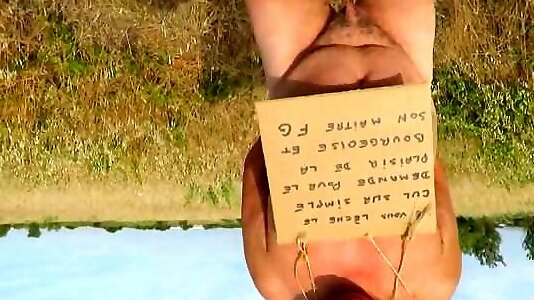 JE VOUS LÈCHE LE
CUL SUR SIMPLE
DEMANDE POUR LE
PLAISIR DE LA
BOURGEOISE ET
SON MAITRE FG